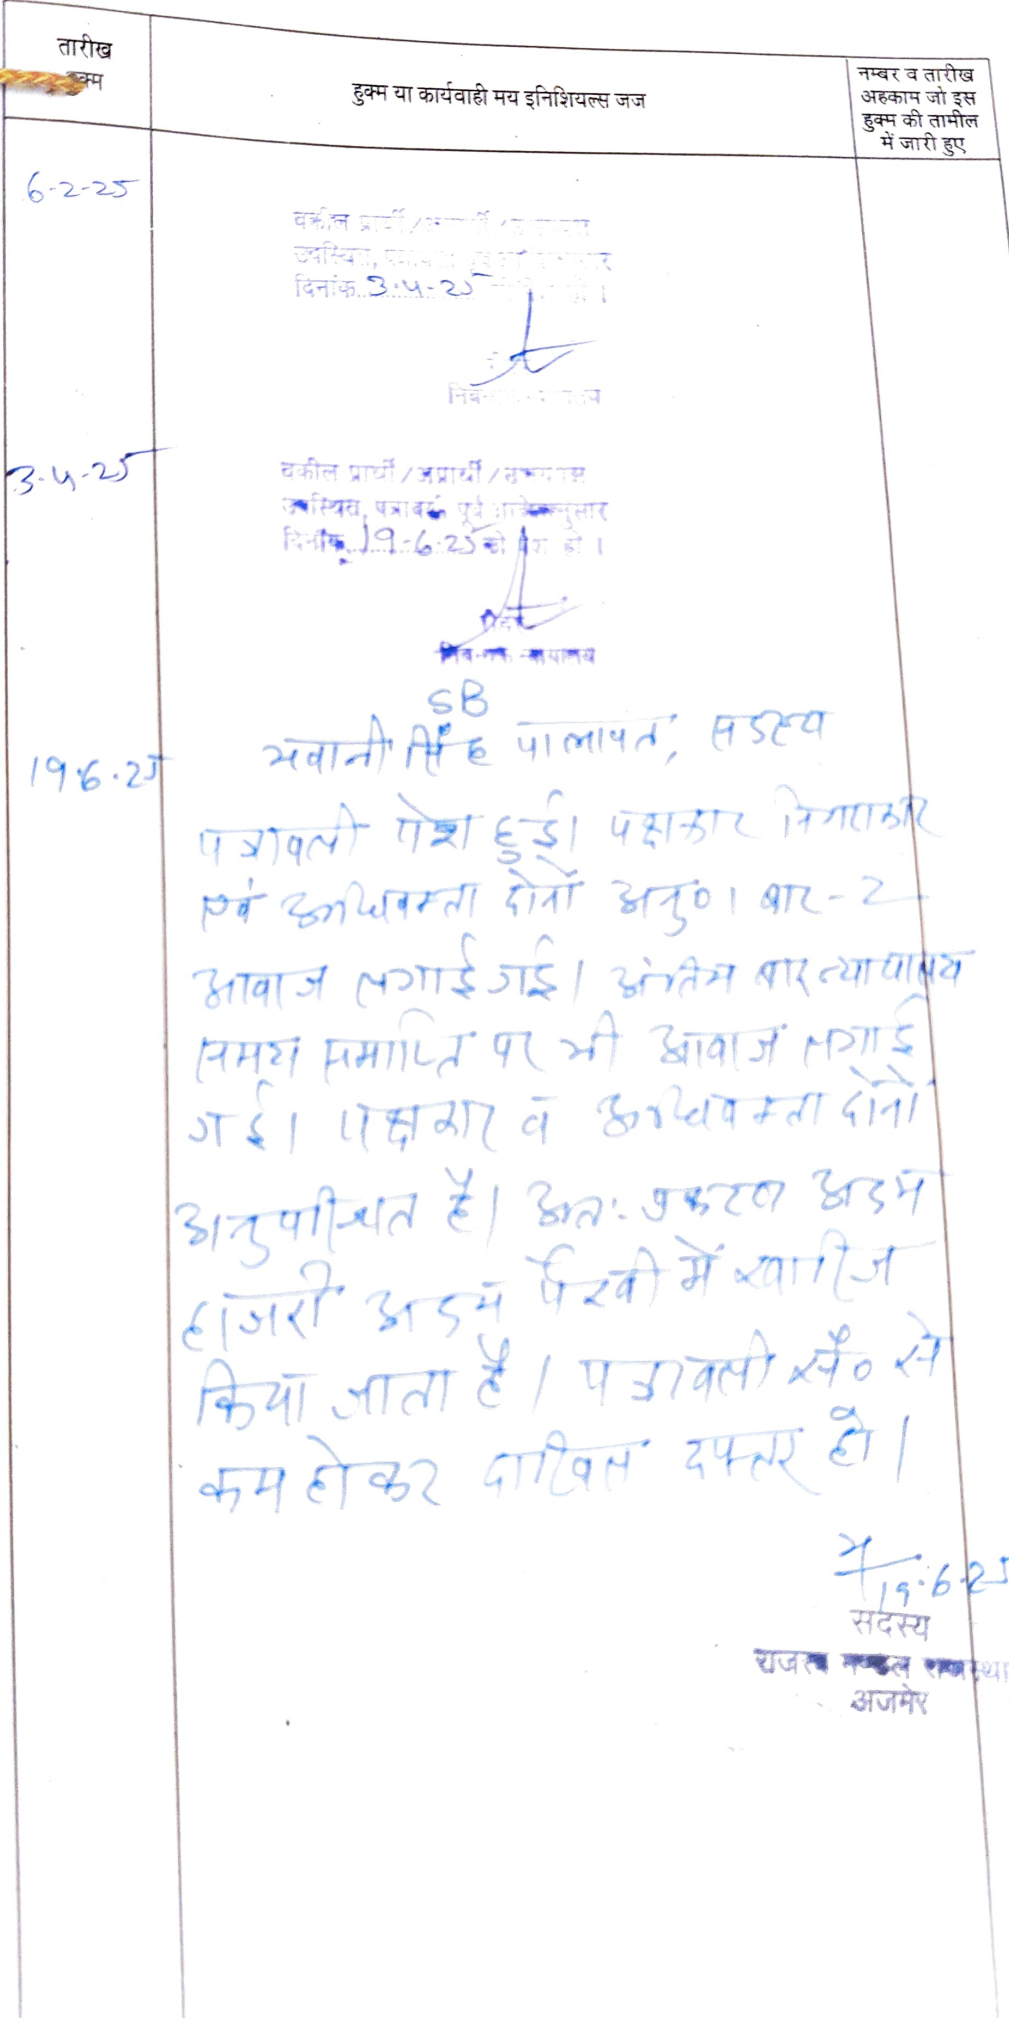 तारीख
हुक्म
हुक्म या कार्यवाही मय इनिशियल्स जज
नम्बर व तारीख
अहकाम जो इस
हुक्म की तामील
में जारी हुए
6-2-25
वकील प्रार्थी /
उपस्थित,
दिनांक 3.4-25
3-4-25
वकील प्रार्थी / अप्रार्थी /
उपस्थित, पत्रावली पूर्व आदेशानुसार
दिनांक 19-6-25 को पेश हो ।
SB
भवानी सिंह पालावत, सदस्य
19.6.25
पत्रावली पेश हुई। पक्षकार निगराकार
एवं अधिवक्ता दोनों अनु० । बार-2
आवाज लगाई गई। अंतिम बार न्यायालय
समय समाप्ति पर भी आवाज लगाई
गई। पक्षकार व अधिवक्ता दोनों
अनुपस्थित है। अतः प्रकरण अदम
हाजरी अदम पैरवी में खारिज
किया जाता है। पत्रावली सं० से
कम होकर दाखिल दफ्तर हो।
19.6.25
सदस्य
राजस्व मण्डल राजस्था
अजमेर